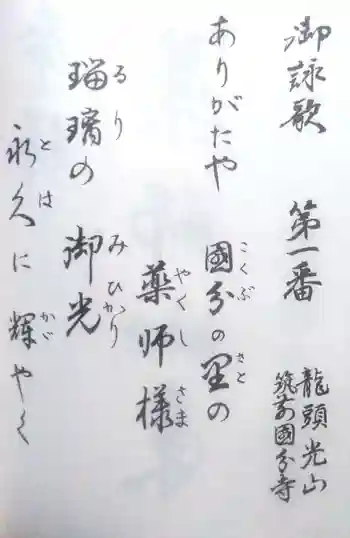 御詠歌 第一番
龍頭光山
筑前國分寺
ありがたや 國分の里の
こくぶ さと
薬師様
やくし さま
瑠璃の 御光
るり みひかり
永久に 輝やく
とは かゞ